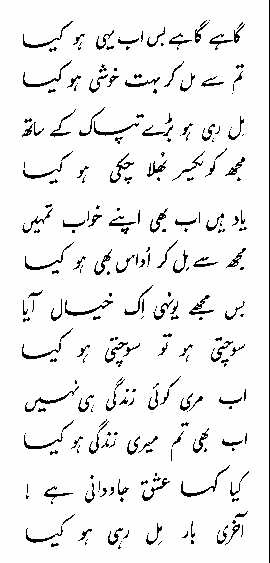 گاہے گاہے بس اب یہی ہو کیا
تم سے مل کر بہت خوشی ہو کیا
مل رہی ہو بڑے تپاک کے ساتھ
مجھ کو یکسر بھلا چکی ہو کیا
یاد ہیں اب بھی اپنے خواب تمہیں
مجھ سے مل کر اُداس بھی ہو کیا
بس مجھے یونہی اِک خیال آیا
سوچتی ہو تو سوچتی ہو کیا
اب مری کوئی زندگی ہی نہیں
اب بھی تم میری زندگی ہو کیا
کیا کہا عشق جاودانی ہے !
آخری بار مِل رہی ہو کیا